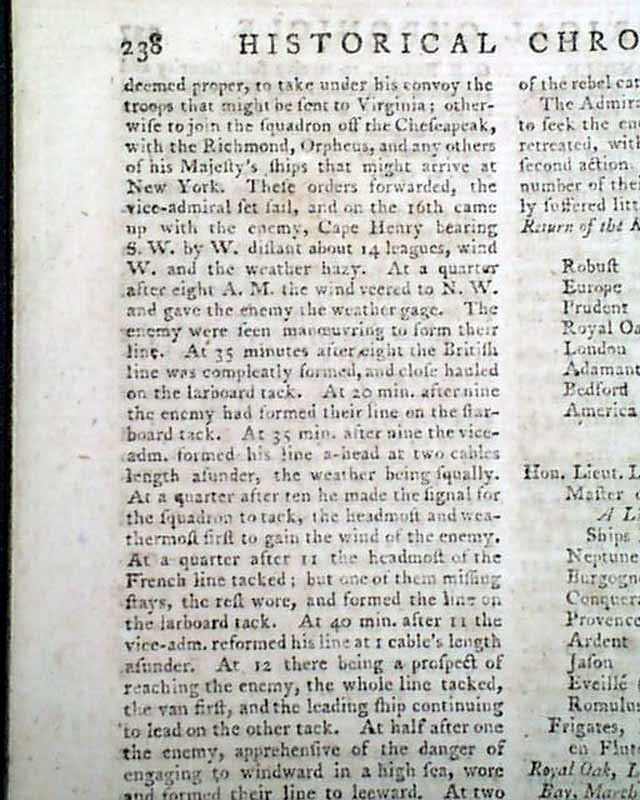 238 HISTORICAL CHRO
deemed proper, to take under his convoy the
troops that might be ſent to Virginia; other-
wiſe to join the ſquadron off the Cheſeapeak,
with the Richmond, Orpheus, and any others
of his Majeſty's ſhips that might arrive at
New York. Theſe orders forwarded, the
vice-admiral ſet ſail, and on the 16th came
up with the enemy, Cape Henry bearing
S. W. by W. diſtant about 14 leagues, wind
W. and the weather hazy. At a quarter
after eight A. M. the wind veered to N. W.
and gave the enemy the weather gage. The
enemy were ſeen manœuvring to form their
line. At 35 minutes after eight the Britiſh
line was compleatly formed, and cloſe hauled
on the larboard tack. At 20 min. after nine
the enemy had formed their line on the ſtar-
board tack. At 35 min. after nine the vice-
adm. formed his line a-head at two cables
length aſunder, the weather being ſqually.
At a quarter after ten he made the ſignal for
the ſquadron to tack, the headmoſt and wea-
thermoſt firſt to gain the wind of the enemy.
At a quarter after 11 the headmoſt of the
French line tacked; but one of them miſſing
ſtays, the reſt wore, and formed the line on
the larboard tack. At 40 min. after 11 the
vice-adm. reformed his line at 1 cable's length
aſunder. At 12 there being a proſpect of
reaching the enemy, the whole line tacked,
the van firſt, and the leading ſhip continuing
to lead on the other tack. At half after one
the enemy, apprehenſive of the danger of
engaging to windward in a high ſea, wore
and formed their line to leeward. At two
of the rebel
The Admir
to ſeek the en
retreated, with
ſecond action.
number of thei
ly ſuffered litt
Return of the K
Robuſt
Europe
Prudent
Royal Oa
London
Adamant
Bedford
America
Hon. Lieut. L
Maſter
A Li
Ships
Neptune
Burgogn
Conquera
Provence
Ardent
Jaſon
Eveillé
Romulus
Frigates,
en Flut
Royal Oak, L
Bay, March